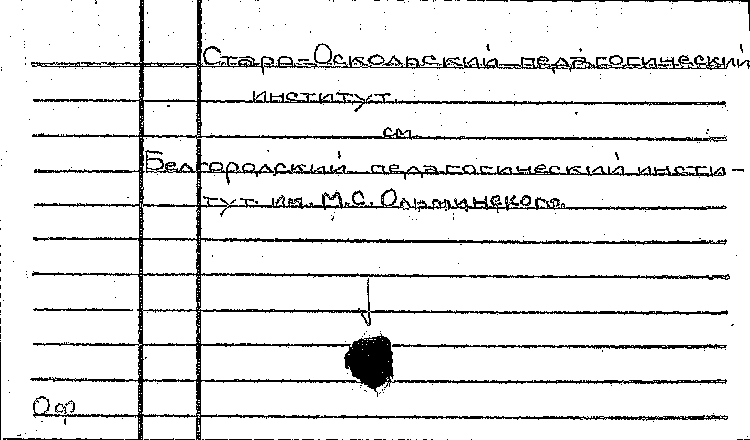 Старо-Оскольский педагогический
институт.
см.
Белгородский педагогический инсти-
тут им. М.С. Ольминского.
Оф